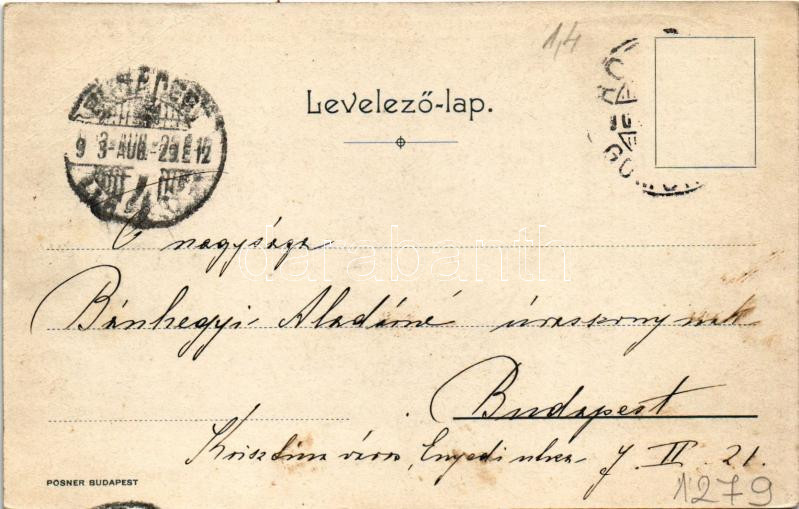 1,4
Levelező-lap.
BUDAPEST
9 3-AUG.-29.E 12
Ő nagysága
Bánhegyi Aladárné úrasszonynak
Budapest
Krisztina város, Enyedi utcza 7. II. 21.
POSNER BUDAPEST
1279
darabanth